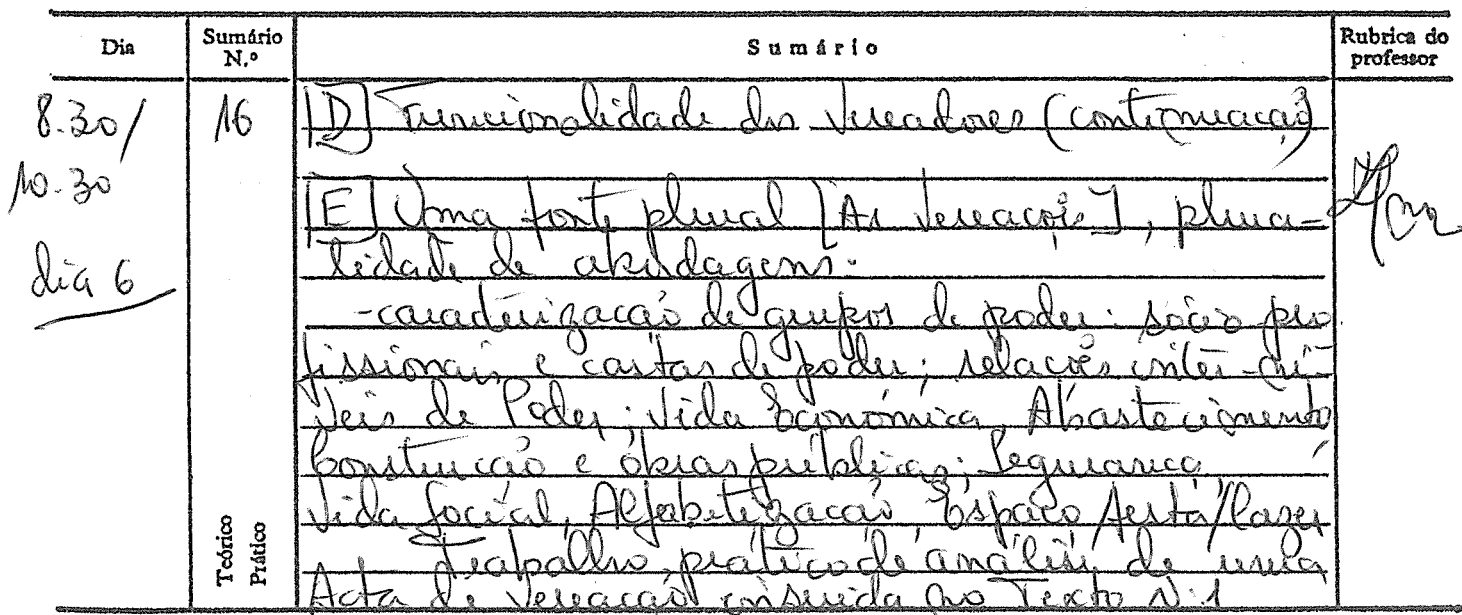 Dia Sumário N.º Sumário Rubrica do professor
8.30/ 16 [D] Funcionalidade dos Vereadores (continuação)
10.30
dia 6
[E] Uma fonte plural [As Vereações], plura-
lidade de abordagens.
- caracterização de grupos de poder: sócio pro
fissionais e castas de poder; relações inter-ní-
veis de Poder; Vida Económica, Abastecimento
Construção e obras públicas; Segurança
Vida Social, Alfabetização Espaço festa/lazer
trabalho prático de análise de uma
Acta de Vereação inserida no Texto N.1
Teórico
Prático